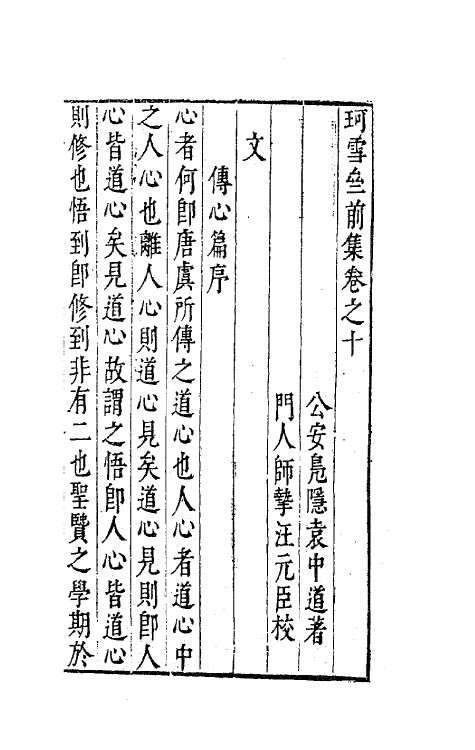 珂雪垒前集卷之十
公安鳧隱袁中道著
門人師摯汪元臣校
文
傳心篇序
心者何卽唐虞所傳之道心也人心者道心中
之人心也離人心則道心見矣道心見則卽人
心皆道心矣見道心故謂之悟卽人心皆道心
則修也悟到卽修到非有二也聖賢之學期於